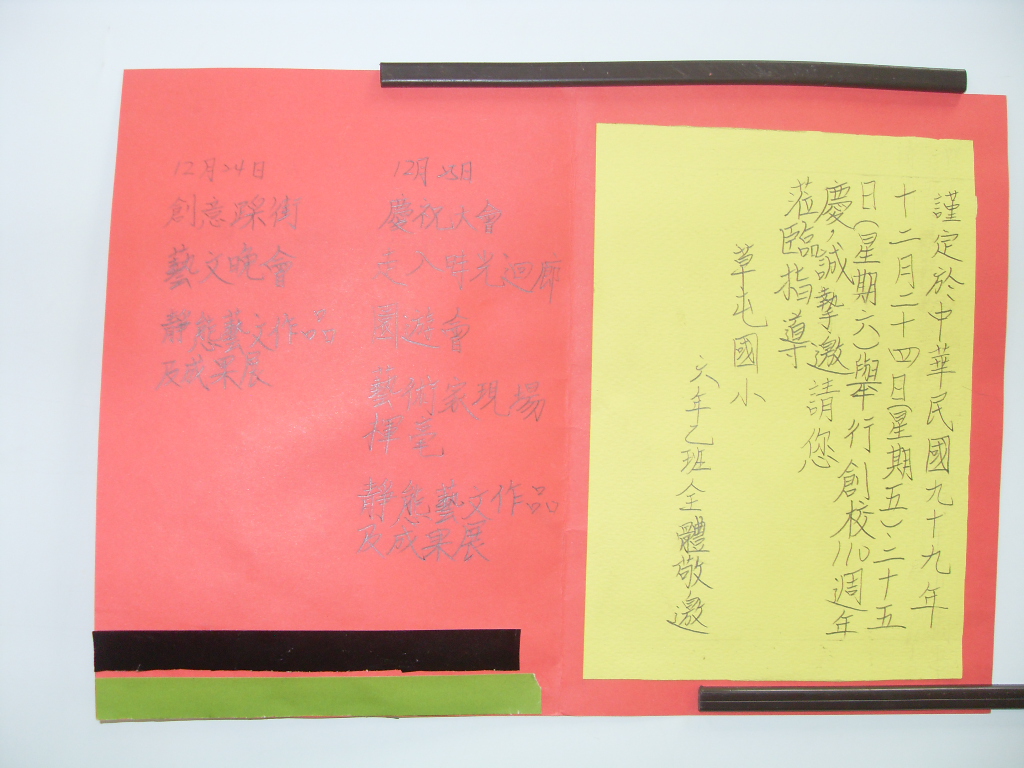 謹定於中華民國九十九年
十二月二十四日(星期五)、二十五
日(星期六)舉行創校110週年
慶,誠摯邀請您
蒞臨指導
草屯國小
六年乙班全體敬邀
12月24日
創意踩街
藝文晚會
靜態藝文作品
及成果展
12月25日
慶祝大會
走入時光迴廊
園遊會
藝術家現場
揮毫
靜態藝文作品
及成果展